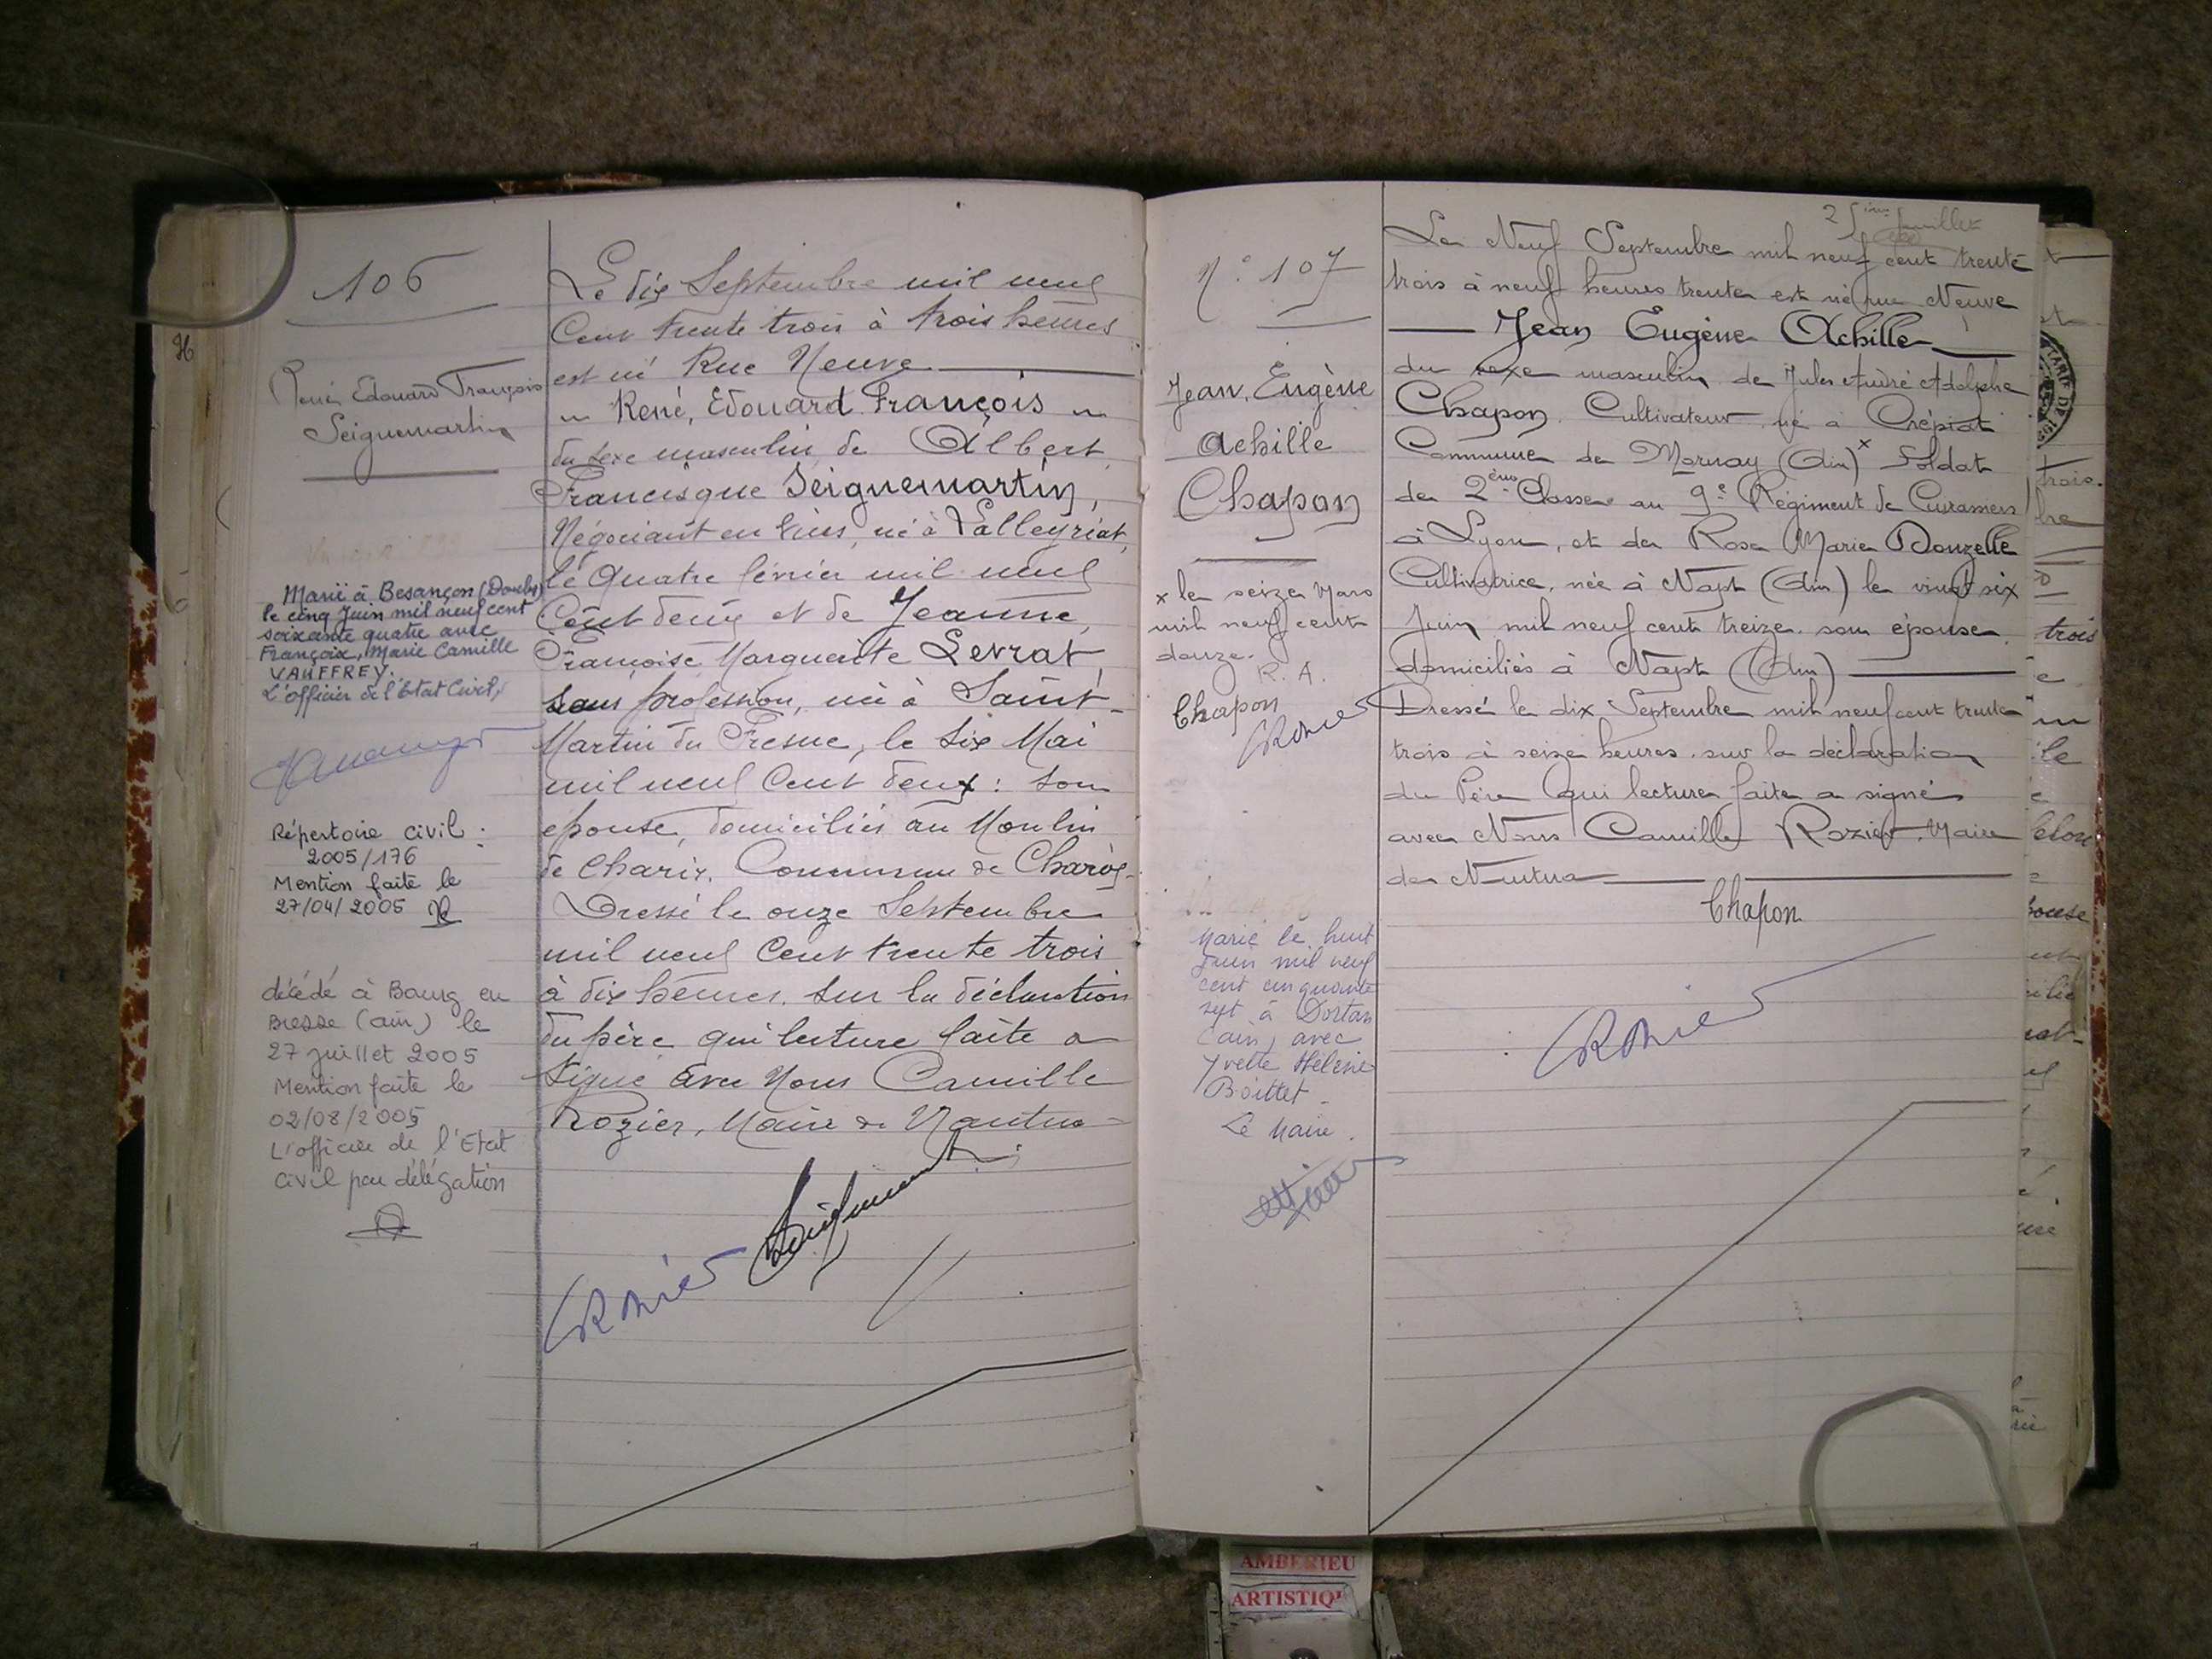 106
René Edouard François
Seignemartin
Marié à Besançon (Doubs)
le cinq Juin mil neuf cent
soixante quatre avec
Françoix, Marie Camille
VAUFFREY.
L'officier de l'Etat Civil,
Répertoire civil :
2005/176
Mention faite le
27/04/2005
décédé à Bourg en
Bresse (ain) le
27 juillet 2005
Mention faite le
02/08/2005
L'officier de l'Etat
civil par délégation
Le dix Septembre mil neuf
Cent trente trois à trois heures
est né Rue Neuve
René, Edouard François
du sexe masculin, de Albert,
Francisque Seignemartin,
Négociant en vins, né à Lalleyriat,
le quatre février mil neuf
Cent deux et de Jeanne,
Françoise Marguerite Levrat,
sans profession, née à Saint-
Martin du Fresne, le six Mai
mil neuf Cent deux : son
épouse, domiciliés au Moulin
de Charix, Commune de Charix.
Dressé le onze Septembre
mil neuf Cent trente trois
à dix heures, sur la déclaration
du père qui lecture faite a
signé avec Nous Camille
Rozier, Maire de Nantua
CRozier
Seignemartin
N° 107
Jean, Eugène
Achille
Chapon
x le seize Mars
mil neuf cent
douze.
R. A.
Chapon
CRozier
Marié le huit
Juin mil neuf
cent cinquante
sept à Dortan
(ain) avec
Yvette Hélène
Boittet -
Le Maire.
25ième feuillet
Le Neuf Septembre mil neuf cent trente
trois à neuf heures trente est né rue Neuve
Jean Eugène Achille
du sexe masculin de Jules André Adolphe
Chapon. Cultivateur né à Crépiat
Commune de Mornay (Ain) x Soldat
de 2ème Classe au 9e Régiment de Cuirassiers
à Lyon, et de Rosa Marie Douzelle
Cultivatrice, née à Napt (Ain) le vingt six
Juin mil neuf cent treize. son épouse.
domiciliés à Napt (Ain)
Dressé le dix Septembre mil neuf cent trente
trois à seize heures. sur la déclaration
du Père qui lecture faite a signé
avec Nous Camille Rozier. Maire
de Nantua
Chapon
CRozier
AMBERIEU
ARTISTIQ